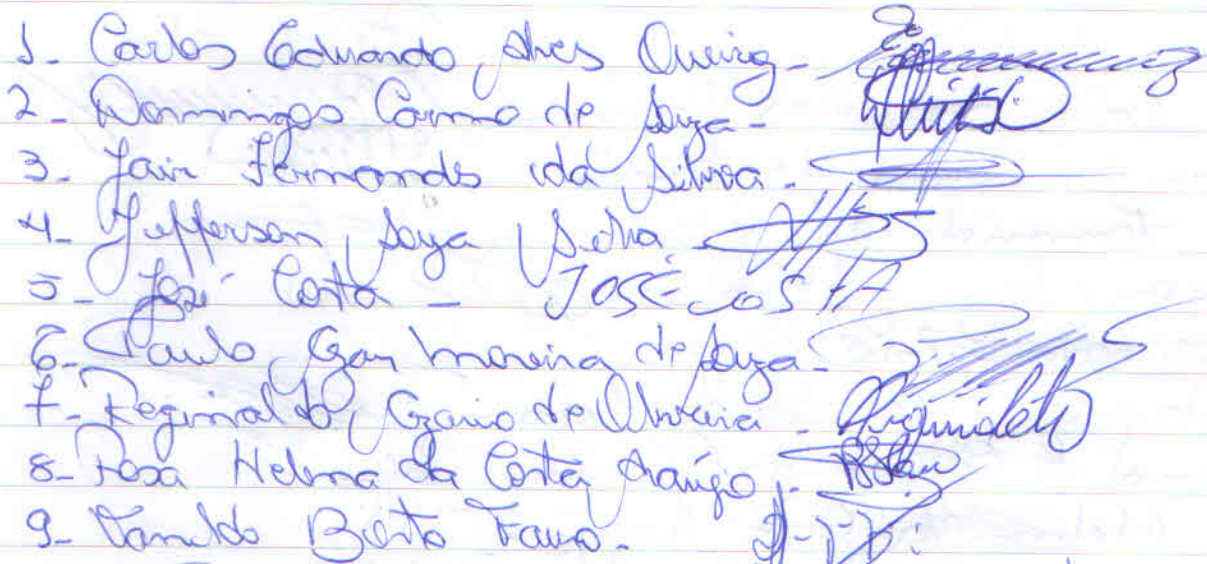 1- Carlos Eduardo Alves Queiroz-
2- Domingos Carmo de Souza-
3- Jair Fernandes da Silva-
4- Jefferson Souza Silva-
5- José Costa - JOSÉ COSTA
6- Paulo Cezar Moreira de Souza-
7- Reginaldo Cezario de Oliveira - Reginaldo
8- Rosa Helena da Costa Araújo-
9- Vanildo Bento